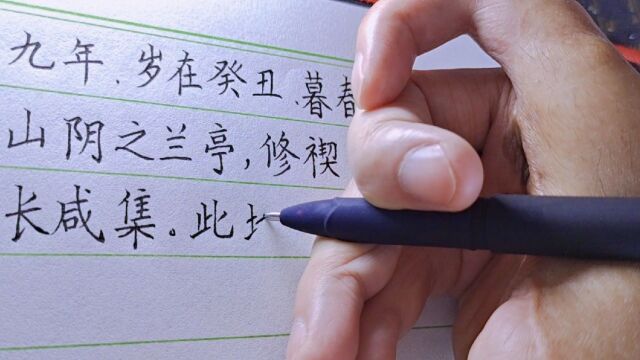 九年、岁在癸丑、暮春
山阴之兰亭,修禊
长咸集。此